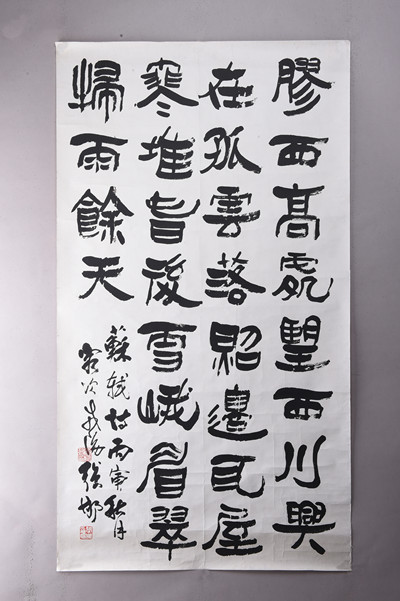 膠西高處望西川興
在孤雲落照邊瓦屋
寒堆旾後雪峨眉翠
掃雨餘天
蘇軾詩丙寅秋月